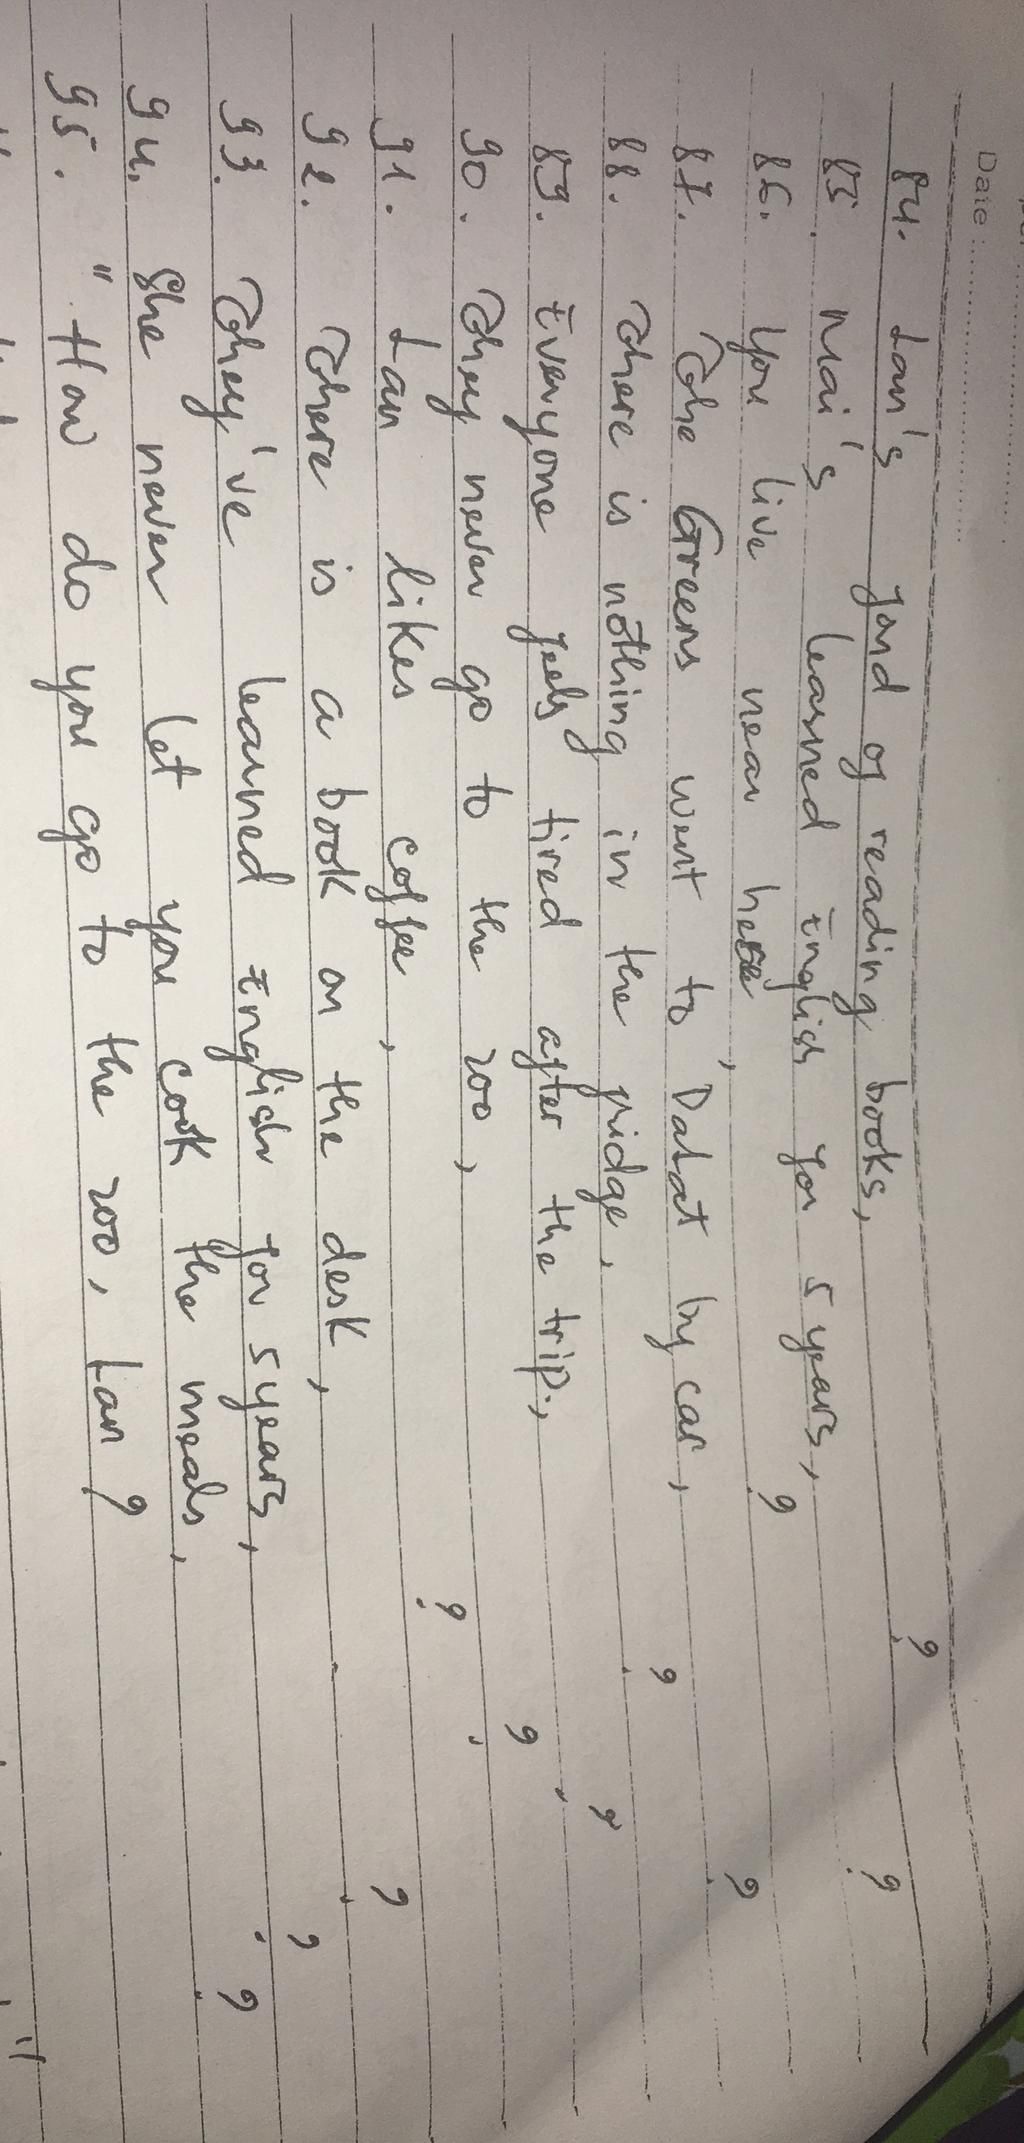 Date :
84. Lan's fond of reading books, ?
85. Mai's learned English for 5 years, ?
86. You live near here, ?
87. The Greens went to DaLat by car, ?
88. There is nothing in the fridge, ?
89. Everyone feels tired after the trip., ?
90. They never go to the zoo, ?
91. Lan likes coffee, ?
92. There is a book on the desk, ?
93. They've learned English for 5 years, ?
94. She never let you cook the meals, ?
95. " How do you go to the zoo, Lan ?